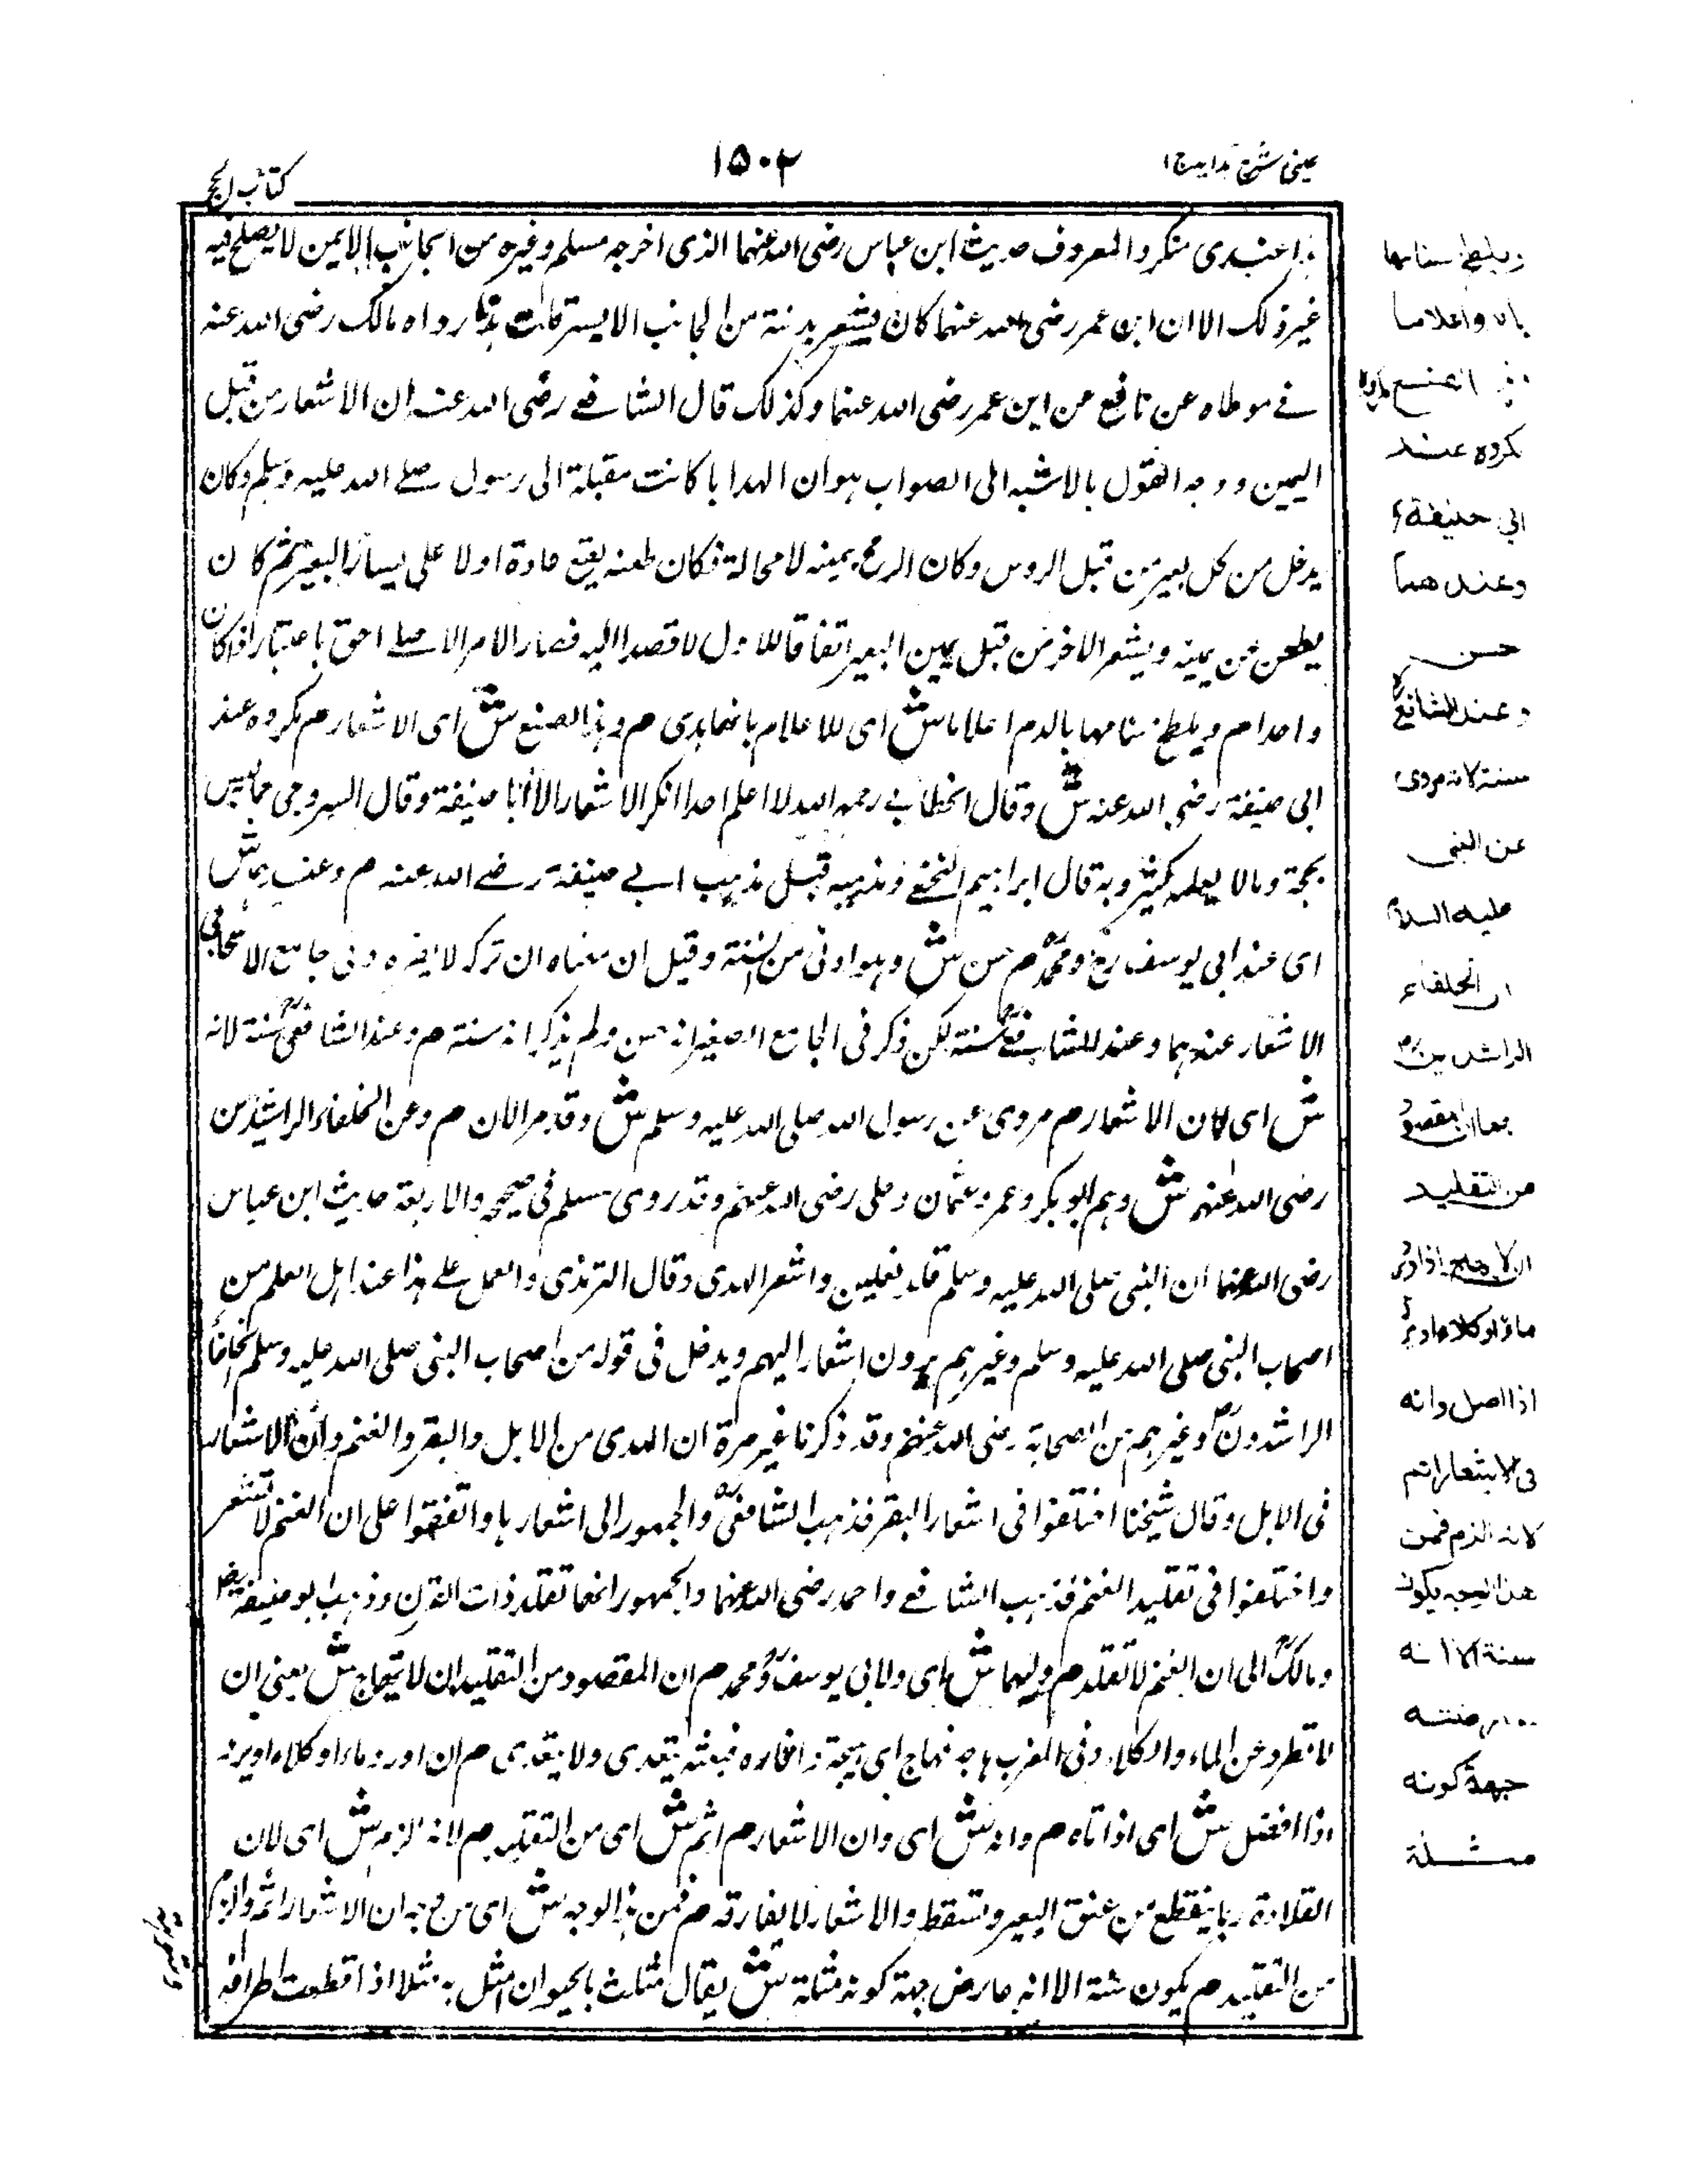 عینی شرح ہدایہ ج ۱
۱۵۰۲
کتاب الحج
ہذا عندی منکر والمعروف حدیث ابن عباس رضی اللہ عنہما الذی اخرجہ مسلم وغیرہ من الجانب الایمن لا یصلح فیہ
غیر ذلک الا ان ابن عمر رضی اللہ عنہما کان یشعر بدنتہ من الجانب الایسر قلت ہذا رواہ مالک رضی اللہ عنہ
فی موطاہ عن نافع عن ابن عمر رضی اللہ عنہما وکذلک قال الشافعے رضی اللہ عنہ ان الاشعار من قبل
الیمین ووجہ القول بالاشبہ الی الصواب ہو ان الہدایا کانت مقبلۃ الی رسول صلے اللہ علیہ وسلم وکان
یدخل من کل بعیر من قبل الروس وکان الرمح بیمینہ لا محالۃ فکان طعنہ یقع عادۃ اولا علی یسار البعیر ثم کان
یطعن عن یمینہ ویشعر الاخر من قبل یمین البعیر اتفاقا للاول لا قصدا الیہ فصار الامر الاصلے احق باعتبار اذا کان
واحدا م ویلطخ سنامہا بالدم اعلاما ش ای للاعلام بانہا ہدی م وہذا الصنع ش ای الاشعار م مکروہ عند
ابی حنیفۃ رضی اللہ عنہ ش وقال الخطابے رحمہ اللہ لا اعلم احدا انکر الاشعار الا ابا حنیفۃ وقال السروجی ما لیس
بحجۃ وما لا یعلمہ کثیر وبہ قال ابراہیم النخعے ومذہبہ قبل مذہب ابے حنیفۃ رضے اللہ عنہ م وعندہما ش
ای عند ابی یوسف رح ومحمد م حسن ش وہو ادنی من السنۃ وقیل ان معناہ ان ترکہ لا یضرہ وفی جامع الاسبیجابی
الاشعار عندہما وعند الشافعی سنۃ لکن ذکر فی الجامع الصغیر انہ حسن ولم یذکر انہ سنۃ م وعند الشافعی سنۃ لانہ
ش ای لان الاشعار م مروی عن رسول اللہ صلی اللہ علیہ وسلم ش وقد مر الان م وعن الخلفاء الراشدین
رضی اللہ عنہم ش وہم ابو بکر وعمر وعثمان وعلی رضی اللہ عنہم وقد روی مسلم فی صحیحہ والاربعۃ حدیث ابن عباس
رضی اللہ عنہما ان النبی صلی اللہ علیہ وسلم قلد نعلین واشعر الہدی وقال الترمذی والعمل علے ہذا عند اہل العلم من
اصحاب النبی صلی اللہ علیہ وسلم وغیرہم یرون اشعار الیہم ویدخل فی قولہ من اصحاب النبی صلی اللہ علیہ وسلم الخلفاء
الراشدون وغیرہم من الصحابۃ رضی اللہ عنہم وقد ذکرنا غیر مرۃ ان الہدی من الابل والبقر والغنم وان الاشعار
فی الابل وقال شیخنا اختلفوا فی اشعار البقر فذہب الشافعی والجمہور الی اشعارہا واتفقوا علی ان الغنم لا تشعر
واختلفوا فی تقلید الغنم فذہب الشافعے واحمد رضی اللہ عنہما والجمہور انہا تقلد ذات القرن وذہب ابو حنیفۃ رضی
ومالک الی ان الغنم لا تقلد م ولہما ش ای ولابی یوسف ومحمد م ان المقصود من التقلید ان لا یہاج ش یعنی ان
لا تطرد عن الماء والکلاء وفی المغرب ہاجہ فہاج ای ہیجہ واثارہ فبعثہ یتعدی ولا یتعدی م ان اورد ماء او کلاء او یرد
اذا افضل ش ای اذا تاہ م وانہ ش ای وان الاشعار م اتم ش ای من التقلید م لانہ الزم ش ای لان
القلادۃ ربما ینقطع من عنق البعیر وتسقط والاشعار لا یفارقہ م فمن ہذا الوجہ ش ای من وجہ ان الاشعار اتم والزم
من التقلید م یکون سنۃ الا انہ عارض جہۃ کونہ مثلۃ ش یقال مثلت بالحیوان امثل بہ مثلا اذا قطعت اطرافہ
ویلطخ سنامہا
بالدم اعلاما
وہذا الصنع
مکروہ عند
ابی حنیفۃ
وعندہما
حسن
وعند الشافعی
سنۃ لانہ مروی
عن النبی
علیہ السلام
الخلفاء
الراشدین
لہما ان المقصود
من التقلید
ان لا یہاج اذا ورد
ماء او کلاء او یرد
اذا اضل وانہ
فی الاشعار اتم
لانہ الزم فمن
ہذا الوجہ یکون
سنۃ الا انہ
جہۃ کونہ
مثلۃ